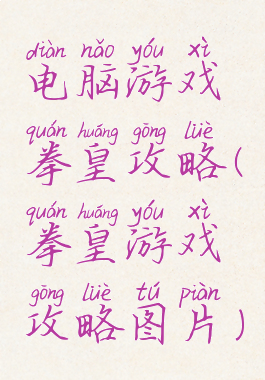 diàn nǎo yóu xì
电脑游戏
quán huáng gōng lüè
拳皇攻略(
quán huáng yóu xì
拳皇游戏
gōng lüè tú piàn
攻略图片)